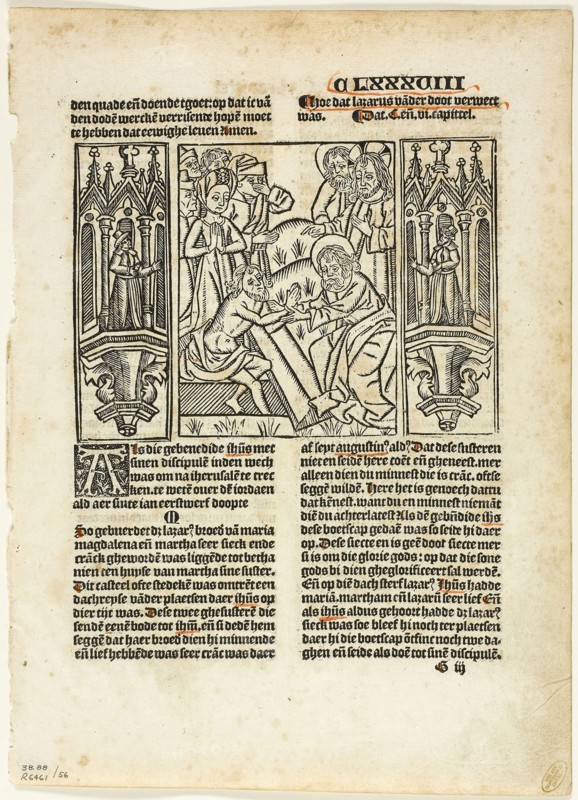 C LXXXVIII
den quade eñ doende tgoet: op dat ic vā
den dodē werckē verrisende hopē moet
te hebben dat eewighe leuen? Amen.
Hoe dat lazarus vāder doot verwect
was. Dat. C. eñ. vi. capittel.
Als die gebenedide ihūs met
sinen discipulē inden wech
was om na iherusalē te trec
ken. te wetē ouer dē iordaen
ald aer sinte ian eerstwerf doopte
So gebuerdet dz lazarꝰ broed vā maria
magdalena eñ martha seer sieck ende
crāck ghewordē was liggēde tot betha
nien ten huyse van martha sine suster.
Dit casteel ofte stedekē was omtrēt een
dachreyse vāder plaetsen daer ihūs op
dier tijt was. Dese twee ghesusterē die
sendē eenē bode tot ihm̄, eñ si dedē hem
seggē dat haer broed dien hi minnende
eñ lief hebbēde was seer crāc was daer
af sept augustinꝰ ald? Dat dese susteren
niet en seidē here coēt eñ gheneest. mer
alleen dien du minnest die is crāc. oftse
seggē wildē. Here het is genoech dattu
dat kēnest. want du en minnest niemāt
diē du achterlatest Als dē gebn̄dide ihs
dese boetscap gedaē was so seide hi daer
op. Dese siecte en is geē doot siecte mer
si is om die glorie gods: op dat die sone
gods bi dien gheglorificeert sal werdē.
Eñ op diē dach sterf lazarꝰ Ihūs hadde
mariā. martham eñ lazarū seer lief Eñ
als ihūs aldus gehoort hadde dz lazarꝰ
sieck was soe bleef hi noch ter plaetsen
daer hi die boetscap ōtfinc noch twe da-
ghen eñ seide als doē tot sinē discipulē.
G iij
38.88
R6461 /56